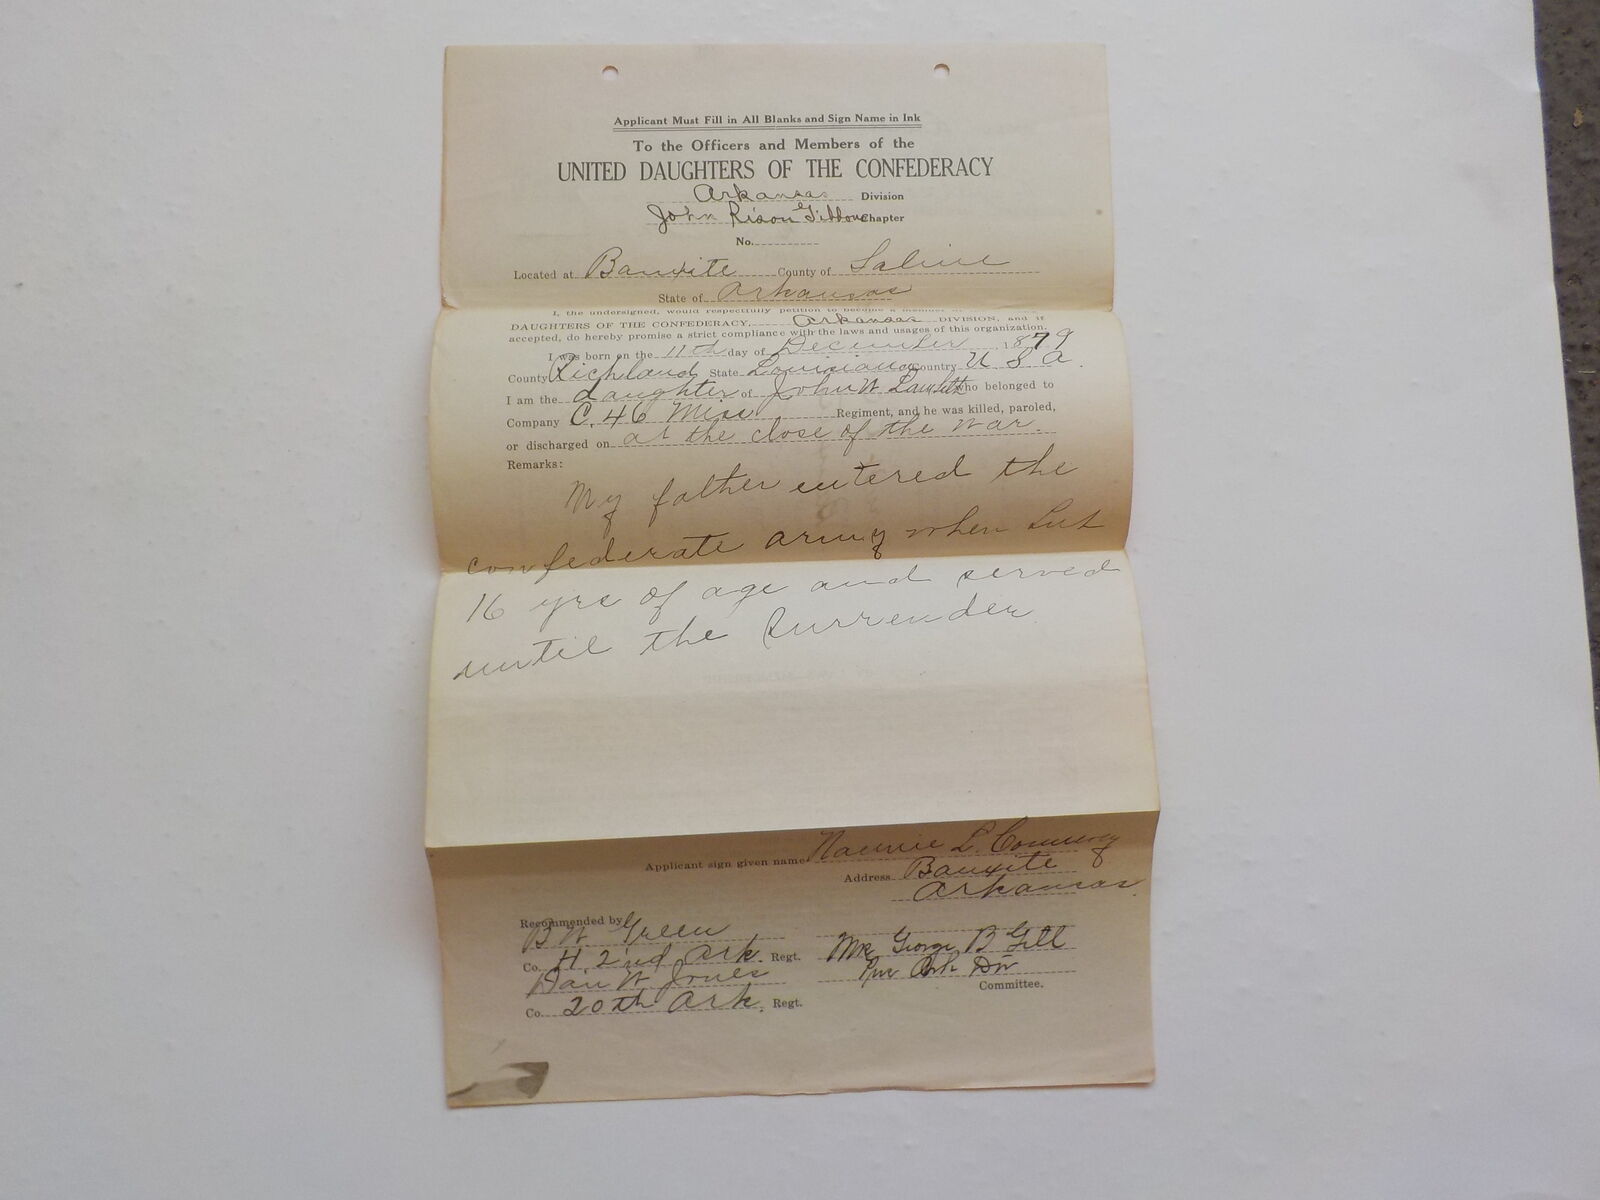 Applicant Must Fill in All Blanks and Sign Name in Ink
To the Officers and Members of the
UNITED DAUGHTERS OF THE CONFEDERACY
Arkansas Division
John Rison Gibbons Chapter
No.
Located at Bauxite County of Saline
State of Arkansas
I, the undersigned, would respectfully petition to become a member of
DAUGHTERS OF THE CONFEDERACY, Arkansas DIVISION, and if
accepted, do hereby promise a strict compliance with the laws and usages of this organization.
I was born on the 11th day of December 1879
County Richland State Louisiana Country U S A.
I am the daughter of John W who belonged to
Company C. 46 Miss Regiment, and he was killed, paroled,
or discharged on at the close of the war.
Remarks:
My father entered the
confederate army when but
16 yrs of age and served
until the surrender
Applicant sign given name Nannie L.
Address Bauxite
Arkansas.
Recommended by
B W. Green
Co. H 2nd Ark. Regt.
Dan W. Jones
Co. 20th Ark. Regt.
Mrs George B Gill
Ark Div
Committee.